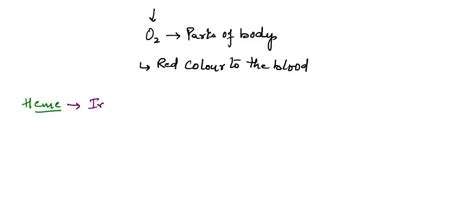 ↓
O₂ → Parts of body
↳ Red Colour to the blood
Heme → Ir